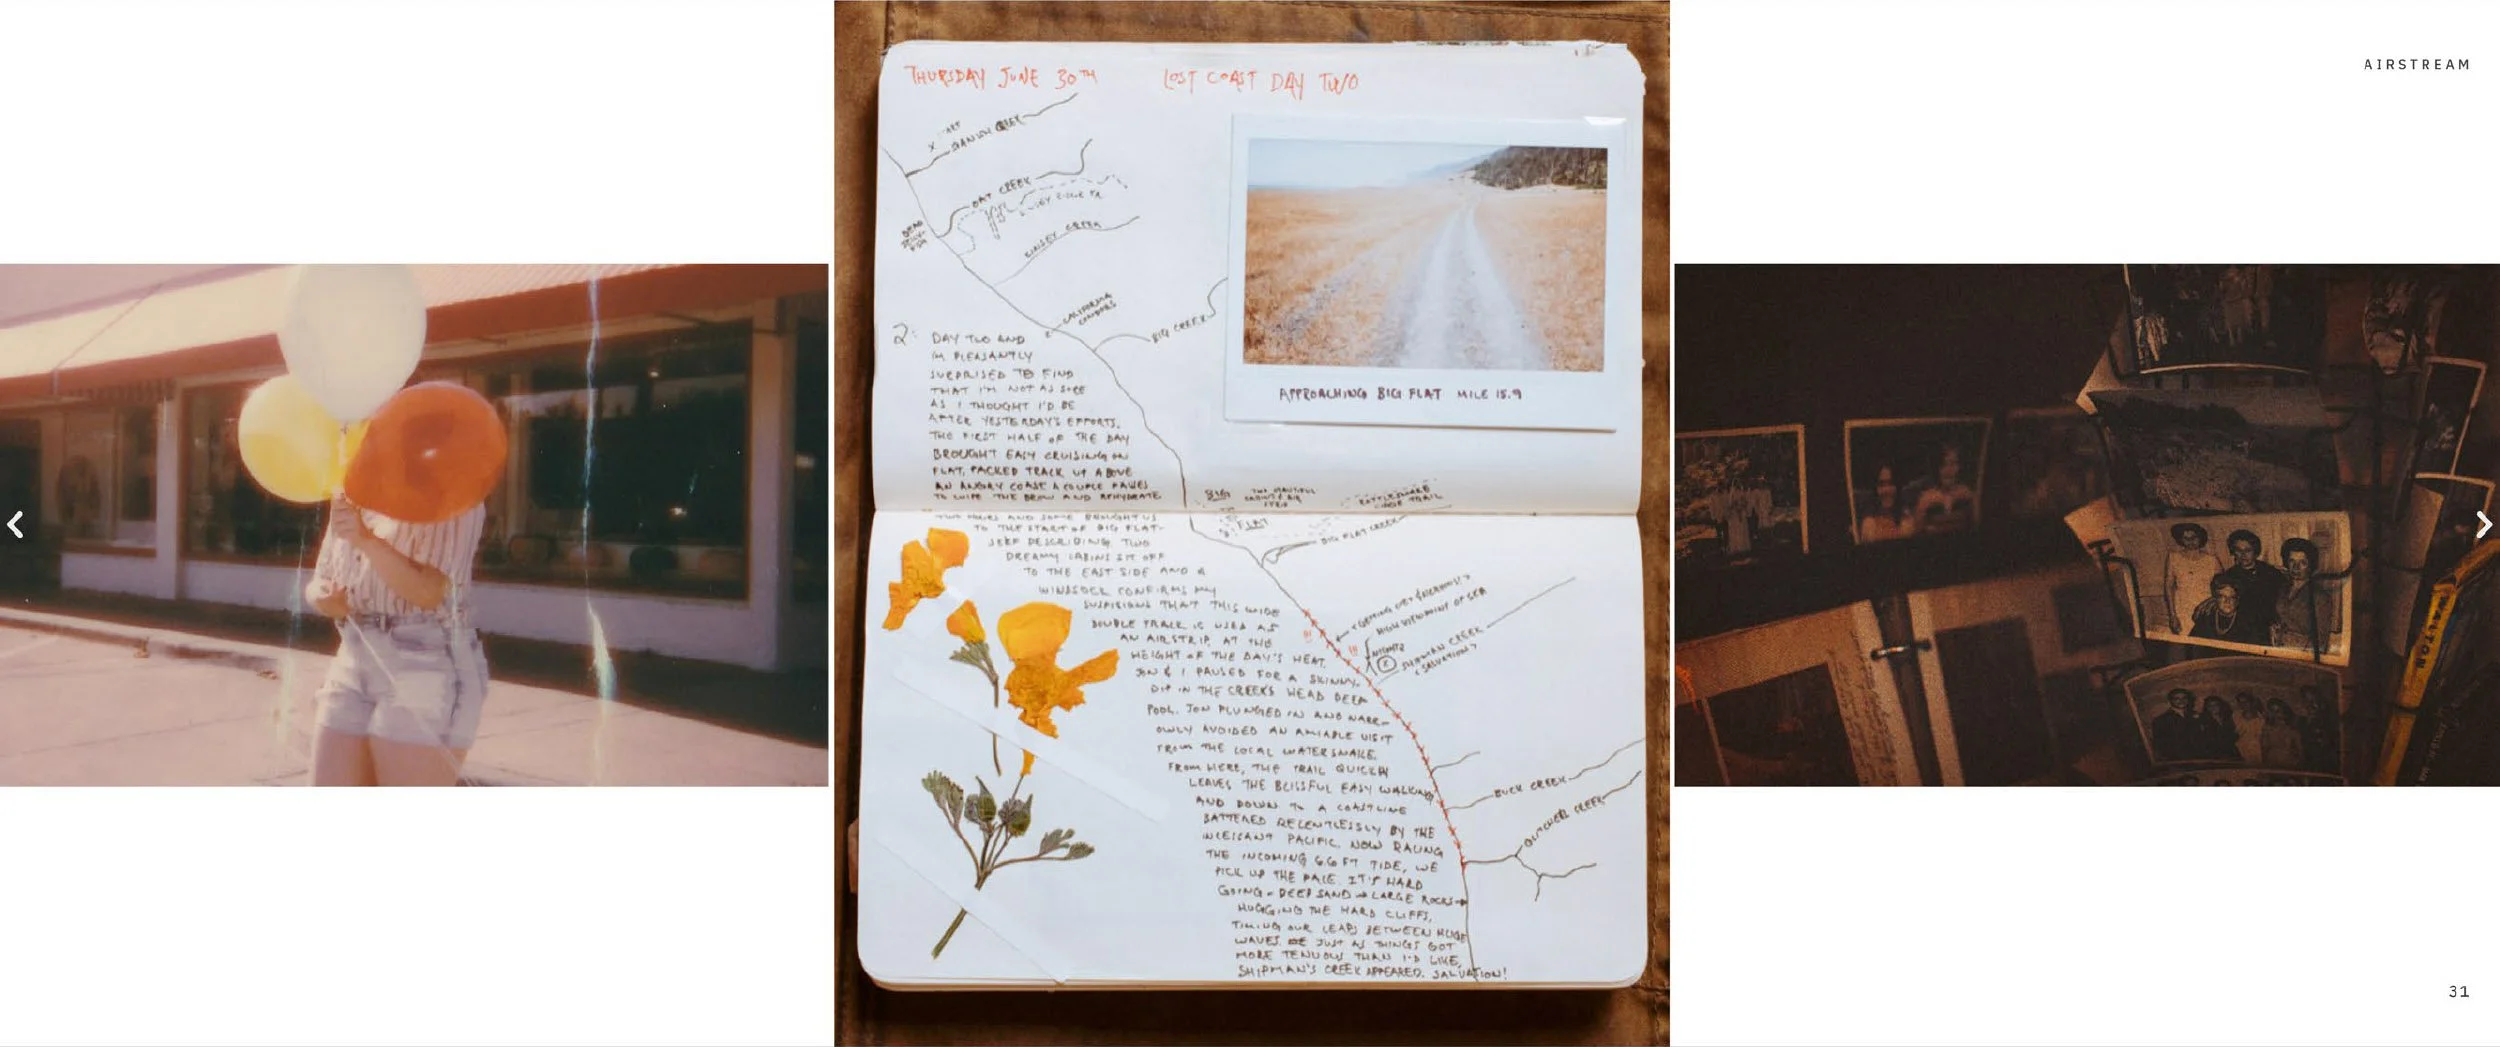 AIRSTREAM
THURSDAY JUNE 30TH LOST COAST DAY TWO
OAT CREEK
KINSEY CREEK
DEAD JELLY-FISH
CALIFORNIA CONDORS
BIG CREEK
APPROACHING BIG FLAT MILE 15.9
2:
DAY TWO AND
I'M PLEASANTLY
SURPRISED TO FIND
THAT I'M NOT AS SORE
AS I THOUGHT I'D BE
AFTER YESTERDAY'S EFFORTS.
THE FIRST HALF OF THE DAY
BROUGHT EASY CRUISING ON
FLAT, PACKED TRACK UP ABOVE
AN ANGRY COAST A COUPLE PAUSES
TO WIPE THE BROW AND REHYDRATE
BIG FLAT
RATTLESNAKE RIDGE TRAIL
BIG FLAT CREEK
TWO HOURS AND SOME BROUGHT US
TO THE START OF BIG FLAT-
JEEP DESCRIBING TWO
DREAMY CABINS SIT OFF
TO THE EAST SIDE AND A
WINDSOCK CONFIRMS MY
SUSPICIONS THAT THIS WIDE
DOUBLE TRACK IS USED AS
AN AIRSTRIP. AT THE
HEIGHT OF THE DAY'S HEAT,
JON & I PAUSED FOR A SKINNY-
DIP IN THE CREEK'S HEAD DEEP
POOL. JON PLUNGED IN AND NARR-
OWLY AVOIDED AN AMIABLE VISIT
FROM THE LOCAL WATERSNAKE.
FROM HERE, THE TRAIL QUICKLY
LEAVES THE BLISSFUL EASY WALKING
AND DOWN TO A COASTLINE
BATTERED RELENTLESSLY BY THE
INCESSANT PACIFIC. NOW RACING
THE INCOMING 6.6 FT TIDE, WE
PICK UP THE PACE. IT'S HARD
GOING - DEEP SAND → LARGE ROCKS →
HUGGING THE HARD CLIFFS,
TIMING OUR LEAPS BETWEEN HUGE
WAVES. JUST AS THINGS GOT
MORE TENUOUS THAN I'D LIKE,
SHIPMAN'S CREEK APPEARED. SALVATION!
HIGH VIEWPOINT OF SEA
NIGHT 2
SHIPMAN CREEK
(SALVATION)
BUCK CREEK
GUTCHER CREEK
WALTON
31